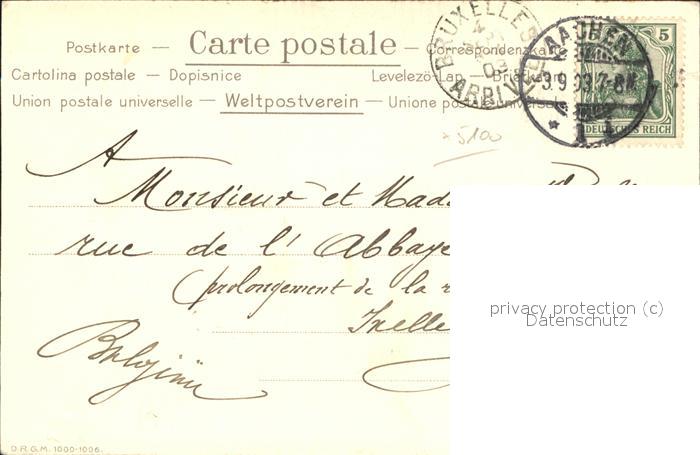 Postkarte — Carte postale — Correspondenzkarte
Cartolina postale — Dopisnice Levelező-Lap — Briefkaart
Union postale universelle — Weltpostverein — Unione postale universale
BRUXELLES
ARRIVÉE
AACHEN
3.9.03.7-8N
* 1 i
5
DEUTSCHES REICH
5100
A
Monsieur et Mada
rue de l'Abbaye
(prolongement de la r
Ixelle
Belgique
privacy protection (c)
Datenschutz
D.R.G.M. 1000-1006.